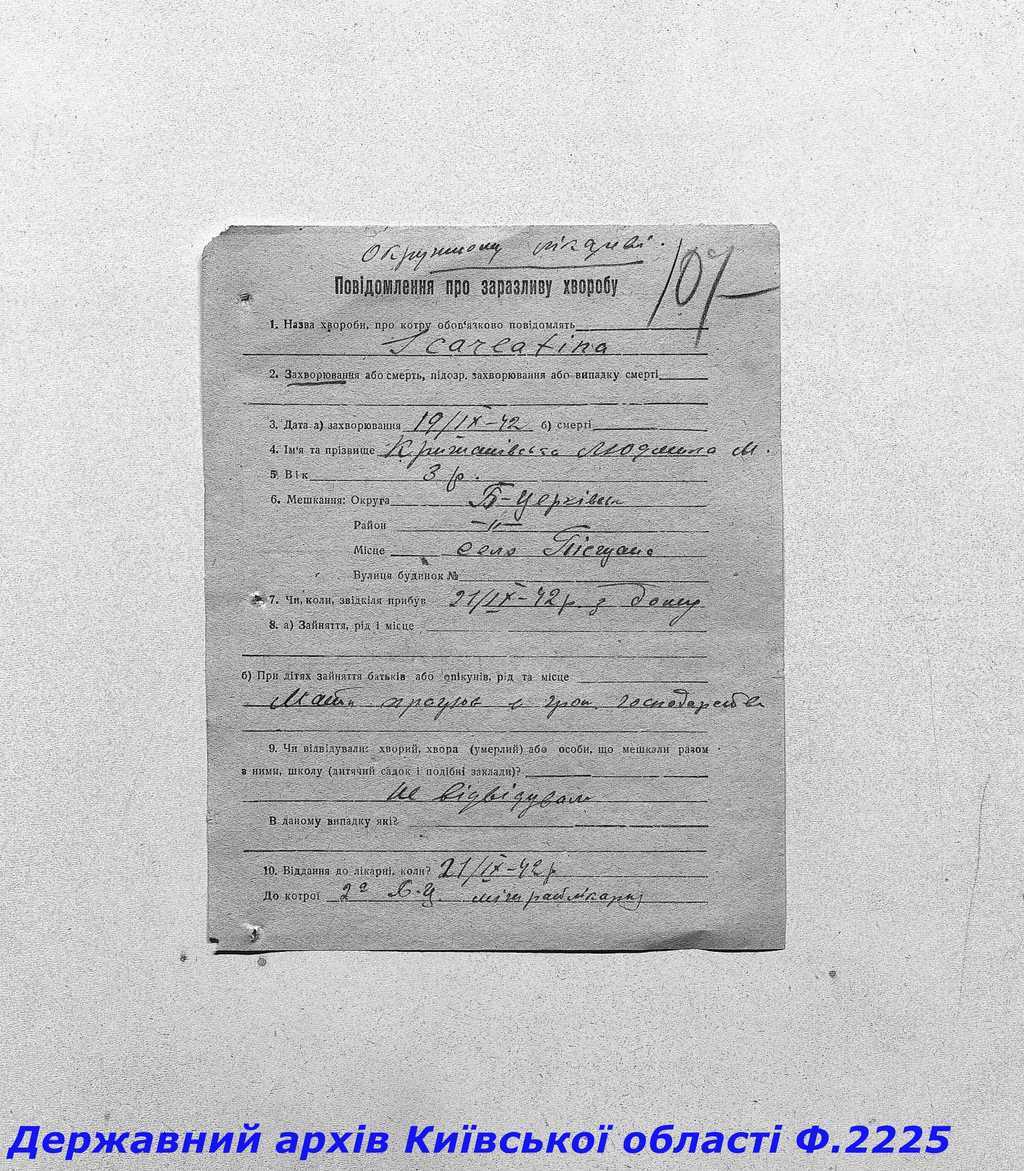 Окружному лікареві.
Повідомлення про заразливу хворобу
1. Назва хвороби, про котру обов'язково повідомлять
Scarlatina
2. Захворювання або смерть, підозр. захворювання або випадку смерті
3. Дата а) захворювання 19/IX-42 б) смерті
4. Ім'я та прізвище Крижанівська Людмила М.
5. Вік 3 р.
6. Мешкання: Округа Б-Церківськ
Район –"–
Місце село Пісчано
Вулиця будинок №
7. Чи, коли, звідкіля прибув 21/IX-42р. з дому
8. а) Зайняття, рід і місце
б) При дітях зайняття батьків або опікунів, рід та місце
Мати працює в гром. господарстві
9. Чи відвідували: хворий, хвора (умерлий) або особи, що мешкали разом
з ними, школу (дитячий садок і подібні заклади)?
Не відвідувала
В даному випадку які?
10. Віддання до лікарні, коли? 21/IX-42р
До котрої 2а Б.Ц.
Державний архів Київської області Ф.2225